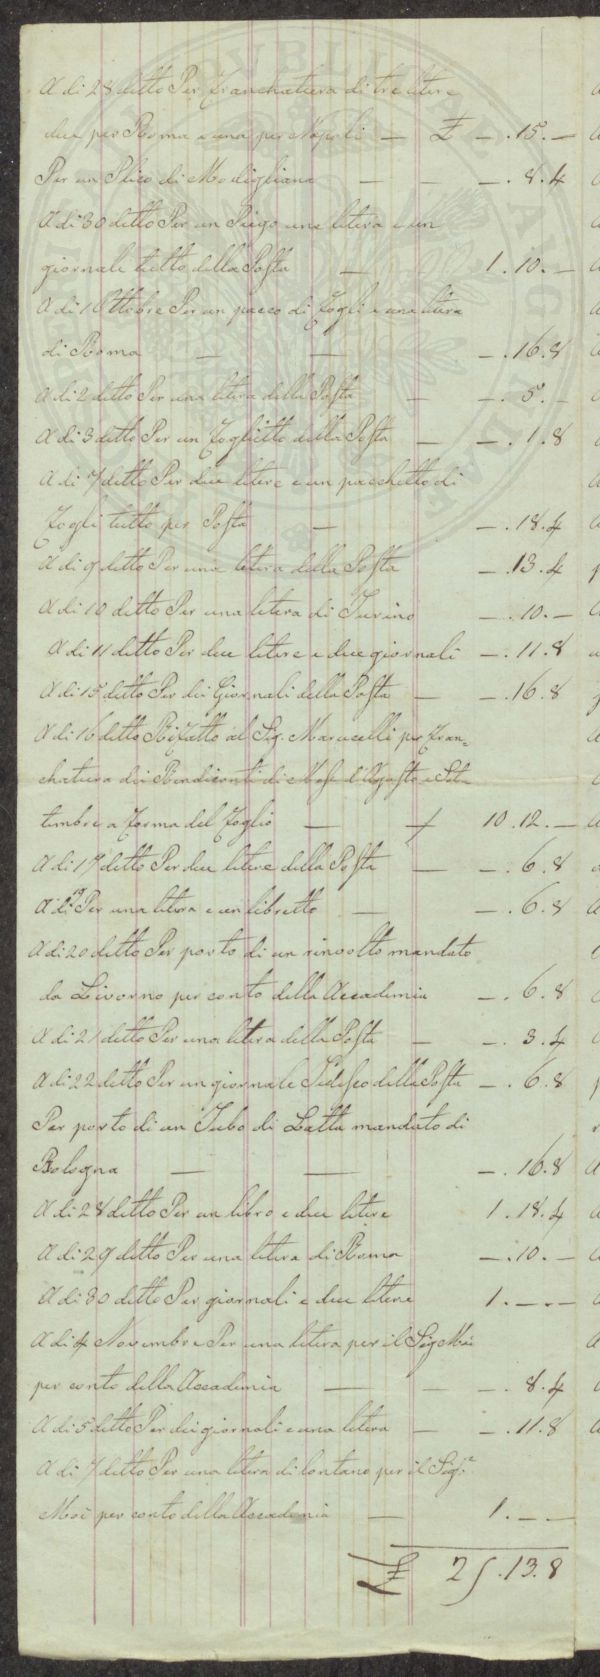 A di 28 detto Per Franchatura di tre litere
due per Roma e una per Napoli — £ — .15.—
Per un Plico di Modigliana — — — . 8.4
A di 30 detto Per un Piego una litera e un
giornale tutto della Posta — 1.10.—
A di 1 Ottobre Per un pacco di Fogli e una litera
di Roma — — — .16.8
A di 2 detto Per una litera della Posta — — . 5.—
A di 3 detto Per un Foglietto della Posta — — . 1.8
A di 7 detto Per due litere e un pacchetto di
Fogli tutto per Posta — — .18.4
A di 9 detto Per una litera della Posta — .13.4
A di 10 detto Per una litera di Turino — .10.—
A di 11 detto Per due litere e due giornali — .11.8
A di 15 detto Per dei Giornali della Posta — — .16.8
A di 16 detto Rifatto al Sig. Marucelli per Fran=
chatura dei Rendiconti di Mese d'Agosto e Set=
timbre a Forma del Foglio — 10.12.—
A di 17 detto Per due litere della Posta — — . 6.8
A di 19 Per una litera e un libretto — — . 6.8
A di 20 detto Per porto di un rinvolto mandato
da Livorno per conto della Accademia — . 6.8
A di 21 detto Per una litera della Posta — — . 3.4
A di 22 detto Per un giornale Tedesco della Posta — . 6.8
Per porto di un Tubo di Latta mandato di
Bologna — — — .16.8
A di 28 detto Per un libro e due litere 1.18.4
A di 29 detto Per una litera di Roma — .10.—
A di 30 detto Per giornali e due litere 1.—.—
A di 4 Novembre Per una litera per il Sig Moi
per conto della Accademia — — — . 8.4
A di 5 detto Per dei giornali e una litera — — .11.8
A di 7 detto Per una litera di lontano per il Sig.
Moi per conto della Accademia — 1.—.—
£ 25.13.8